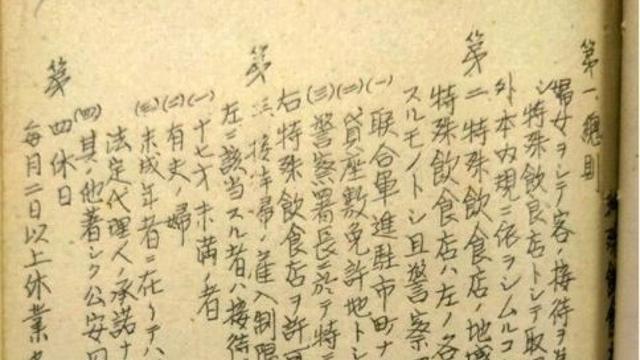 第一總則
婦女ヲシテ客ノ接待ヲ
シ特殊飲食店トシテ取
外本内規ニ依ラシムルコ
第二 特殊飲食店ノ地域
特殊飲食店ハ左ノ各
スルモノトシ且警察
(一) 聯合軍進駐市町ナ
(二) 貸座敷免許地トシ
(三) 警察署長ニ於テ特ニ
右特殊飲食店ヲ許可
第三 接待婦ノ雇入制限
左ニ該当スル者ハ接待
(一) 十七才未満ノ者
(二) 有夫ノ婦
(三) 未成年者ニ在リテハ
法定代理人ノ承諾ナ
(四) 其ノ他著シク公安
第四 休日
毎月二日以上休業